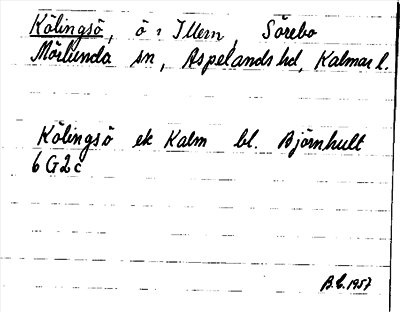 Kölingsö, ö i Illern, Sörebo
Mörlunda sn, Aspelands hd, Kalmar l.
Kölingsö ek Kalm bl. Björnhult
6 G 2 c
B.E. 1957